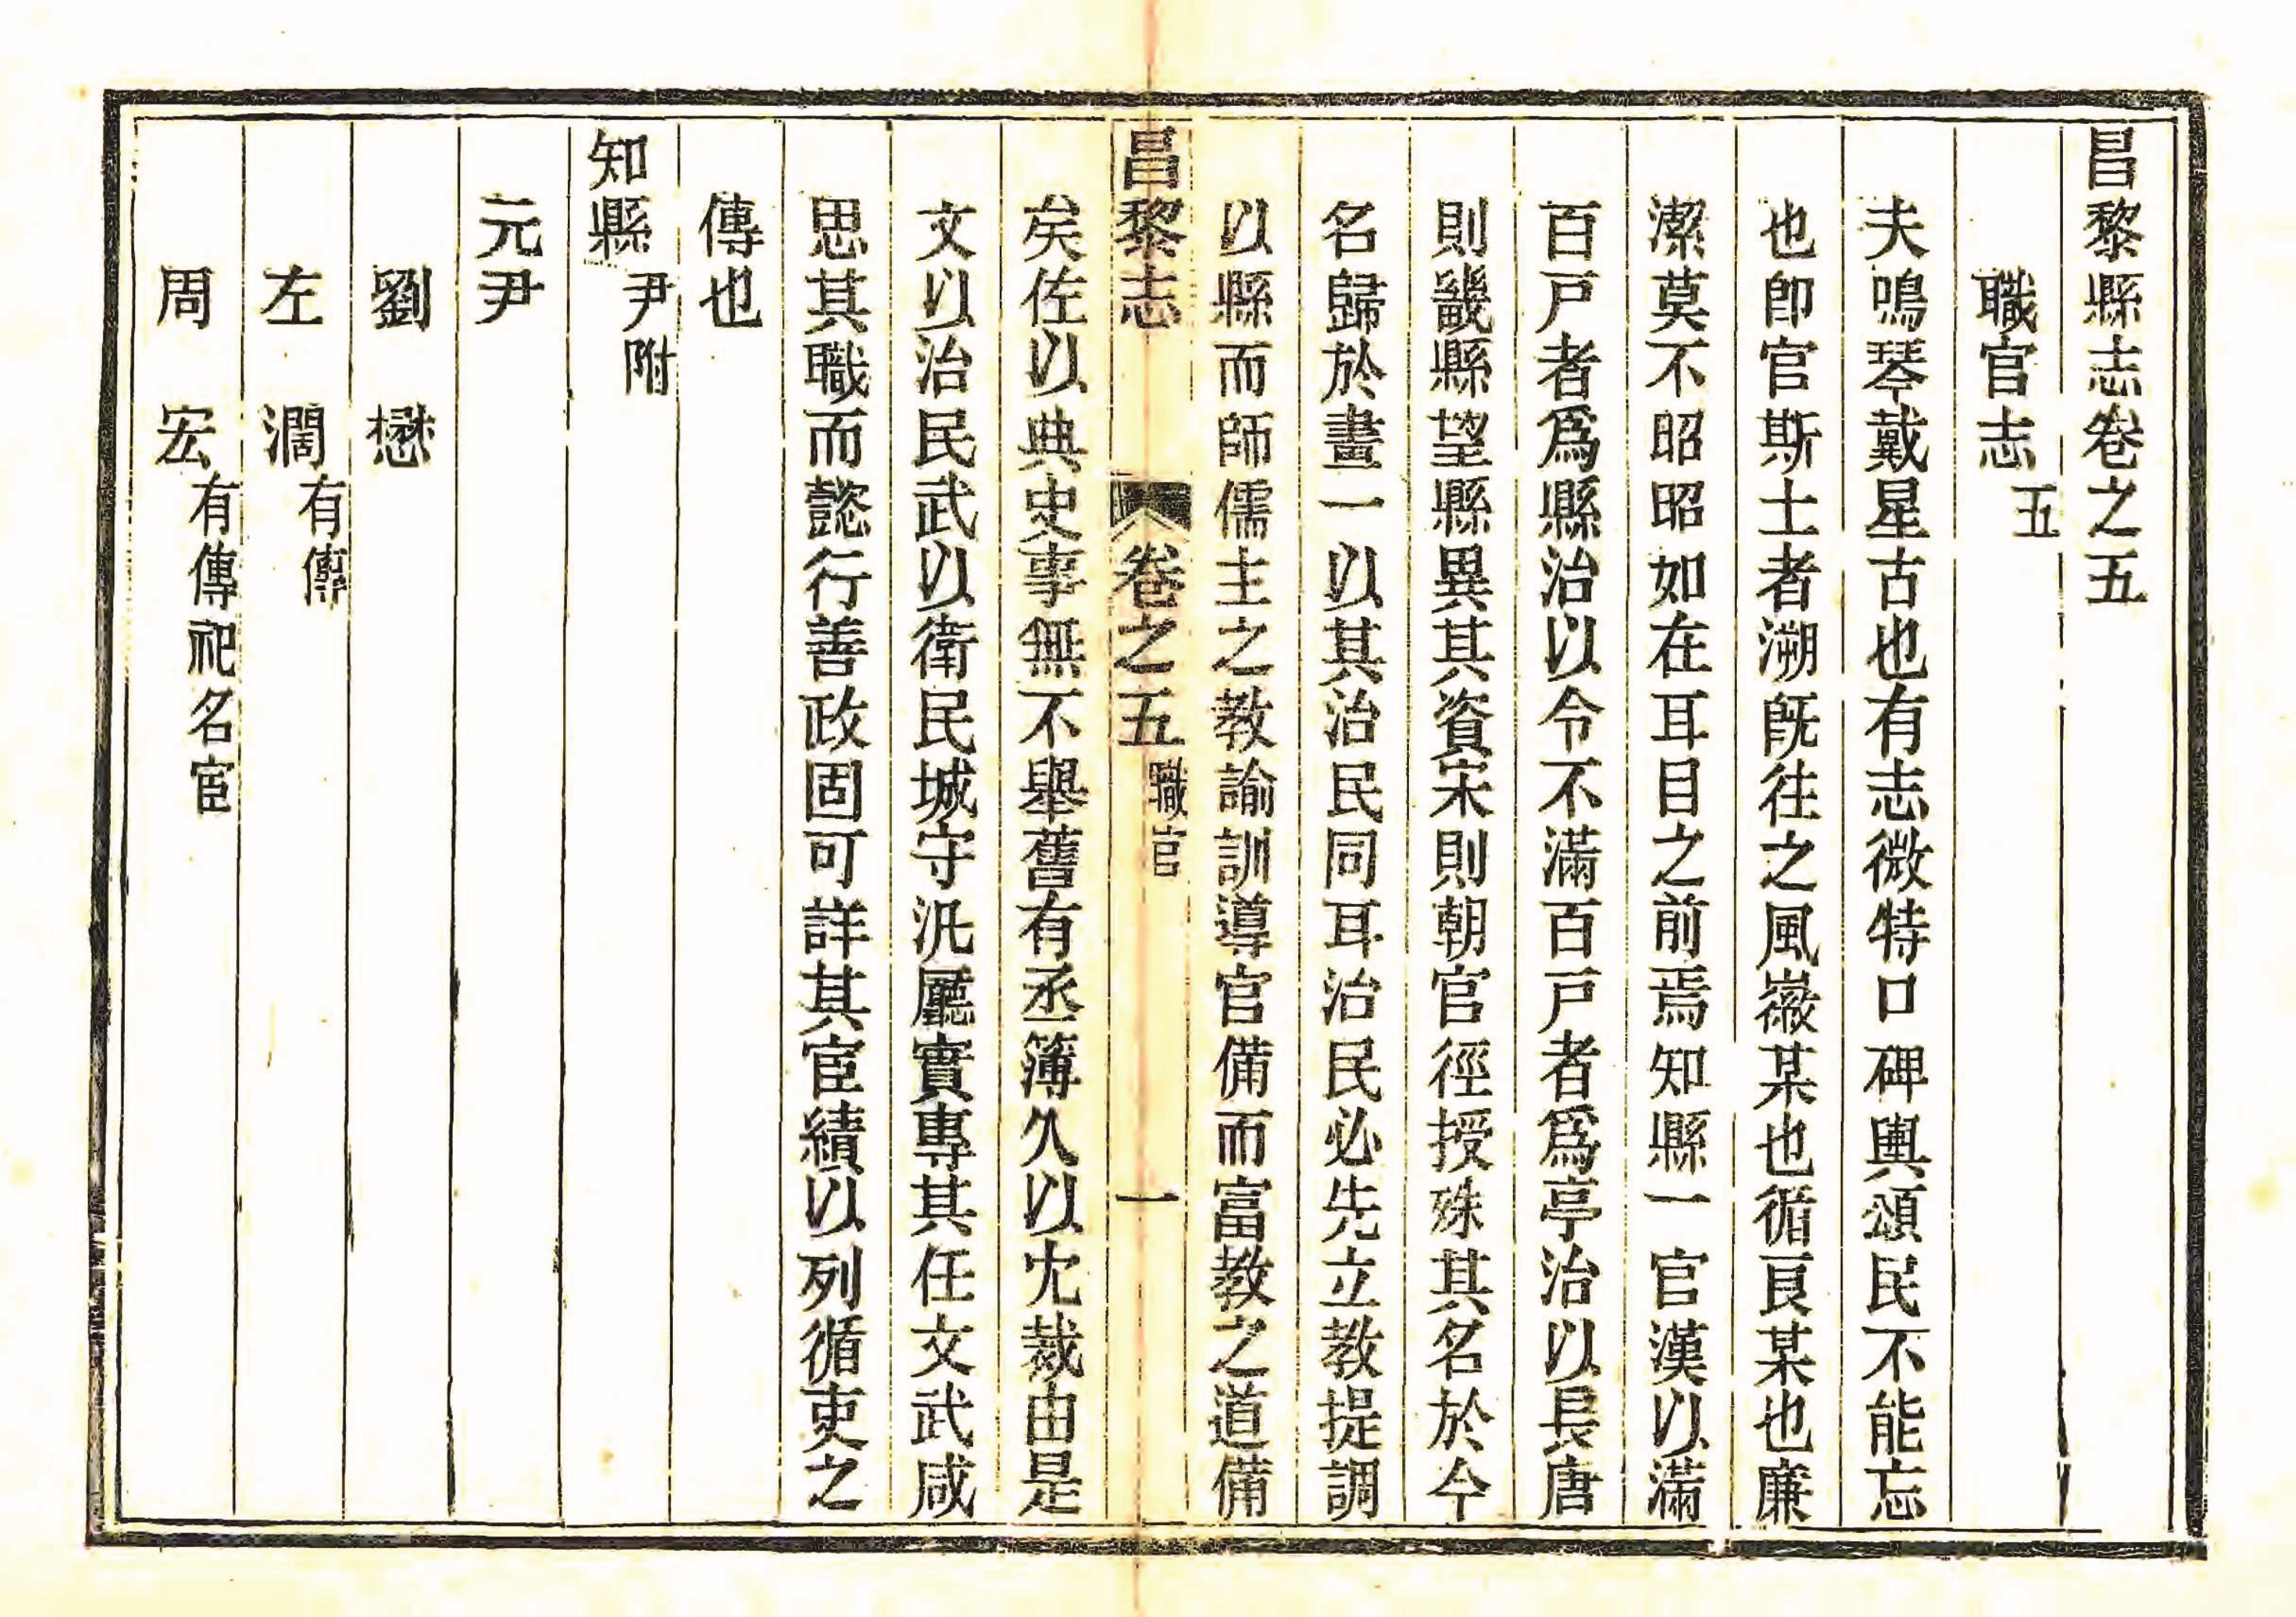 昌黎縣志卷之五
職官志 五
夫鳴琴戴星古也有志微特口碑輿頌民不能忘
也卽官斯土者溯旣往之風徽某也循良某也廉
潔莫不昭昭如在耳目之前焉知縣一官漢以滿
百戸者爲縣治以令不滿百戸者爲亭治以長唐
則畿縣望縣異其資宋則朝官徑授殊其名於今
名歸於畫一以其治民同耳治民必先立教提調
以縣而師儒主之教諭訓導官備而富教之道備
昌黎志 卷之五 職官 一
矣佐以典史事無不舉舊有丞簿久以冘裁由是
文以治民武以衛民城守汛廳實專其任文武咸
思其職而懿行善政固可詳其宦績以列循吏之
傳也
知縣 尹附
元尹
劉 懋
左 濶 有傳
周 宏 有傳祀名宦